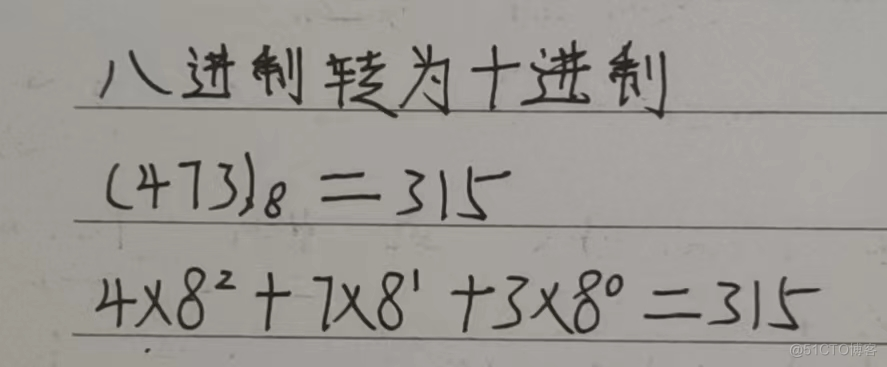 八进制转为十进制
(473)₈ = 315
4×8² + 7×8¹ + 3×8⁰ = 315
@51CTO博客